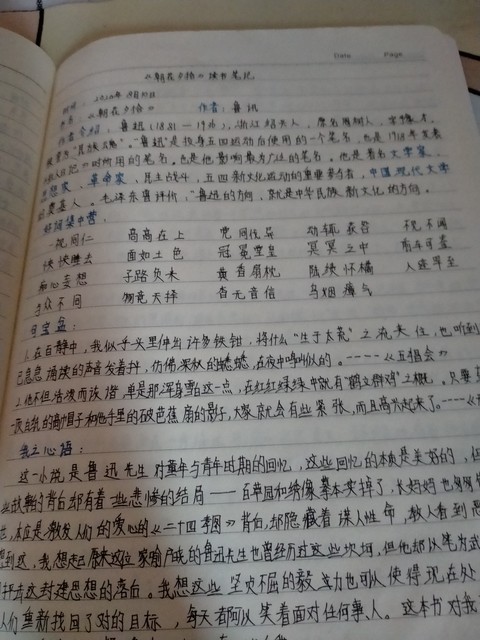 Date Page
《朝花夕拾》读书笔记
《朝花夕拾》 作者：鲁迅
作者介绍：鲁迅（1881—1936），浙江绍兴人，原名周樹人，字豫才，
被誉为"民族文魂"。"鲁迅"是投身五四运动后使用的一个笔名，也是1918年发表
《狂人日记》时所用的笔名。也是他影响最为广泛的笔名。他是著名文学家、
思想家、革命家、民主战斗、五四新文化运动的重要参与者，中国现代文学
的奠基人。毛泽东曾评价，"鲁迅的方向，就是中华民族新文化的方向。
好词集中营：
一视同仁 高高在上 党同伐异 动辄获咎 视不闻
怏怏離去 面如土色 冠冕堂皇 冥冥之中 前车可鉴
痴心妄想 子路负米 黄香扇枕 陆绩怀橘
与众不同 物竞天择 杳无音信 乌烟瘴气
月宝盒：
1.在百静中，我似乎头里伸出许多铁钳，将什么"生于太荒"之流夹住，也听到
自己急急诵读的声音发着抖，仿佛深秋的蟋蟀，在夜中鸣叫似的。-----《五猖会》
2.他不但活泼而诙谐，单是那浑身雪白这一点，在红红绿绿中就有"鹤立群鸡"之概。只要
一顶白纸的高帽子和他手里的破芭蕉扇的影子，大家就会有些紧张，而且高兴起来了。
我之心语：
这一小说是鲁迅先生对童年与青年时期的回忆，这些回忆的本质是美好的，但
故事的背后却有着一些悲惨的结局——百草园和绣像摹本卖掉了，长妈妈也
本应是激发人们的爱心的《二十四孝图》背后，却隐藏着谋人性命，教人看到
想到这，我想起原来这位家喻户晓的鲁迅先生也曾经历过这些坎坷，但他却以笔为武
抨击这封建思想的落后。我想这些坚贞不屈的毅力也可以使得现在处
人们重新找回了对的目标，每天都可以笑着面对任何事、人。这本书对我